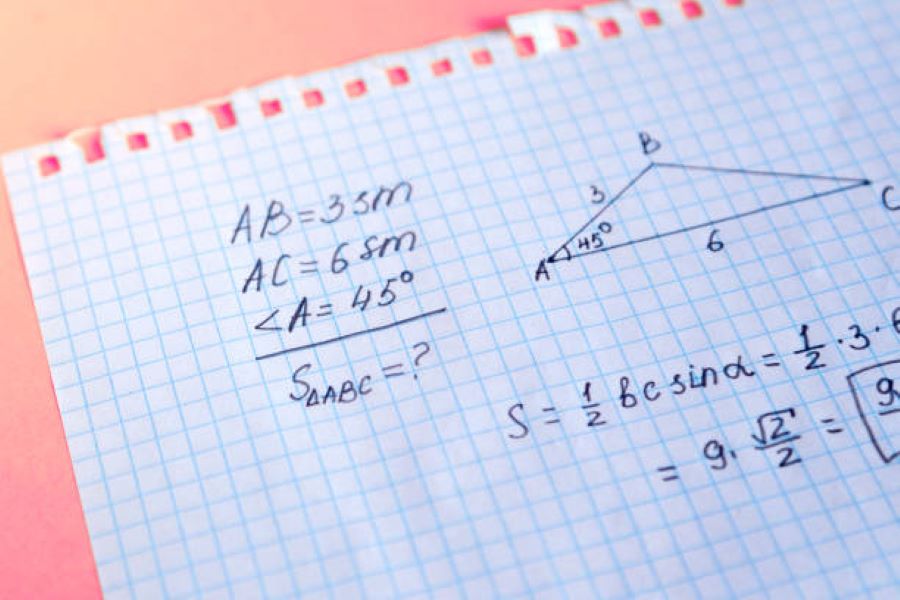 AB = 3 sm
AC = 6 sm
∠A = 45°
S△ABC = ?
B
3
45°
A
6
C
S = 1/2 bc sin α = 1/2 · 3 ·
= 9 · √2/2 = 9